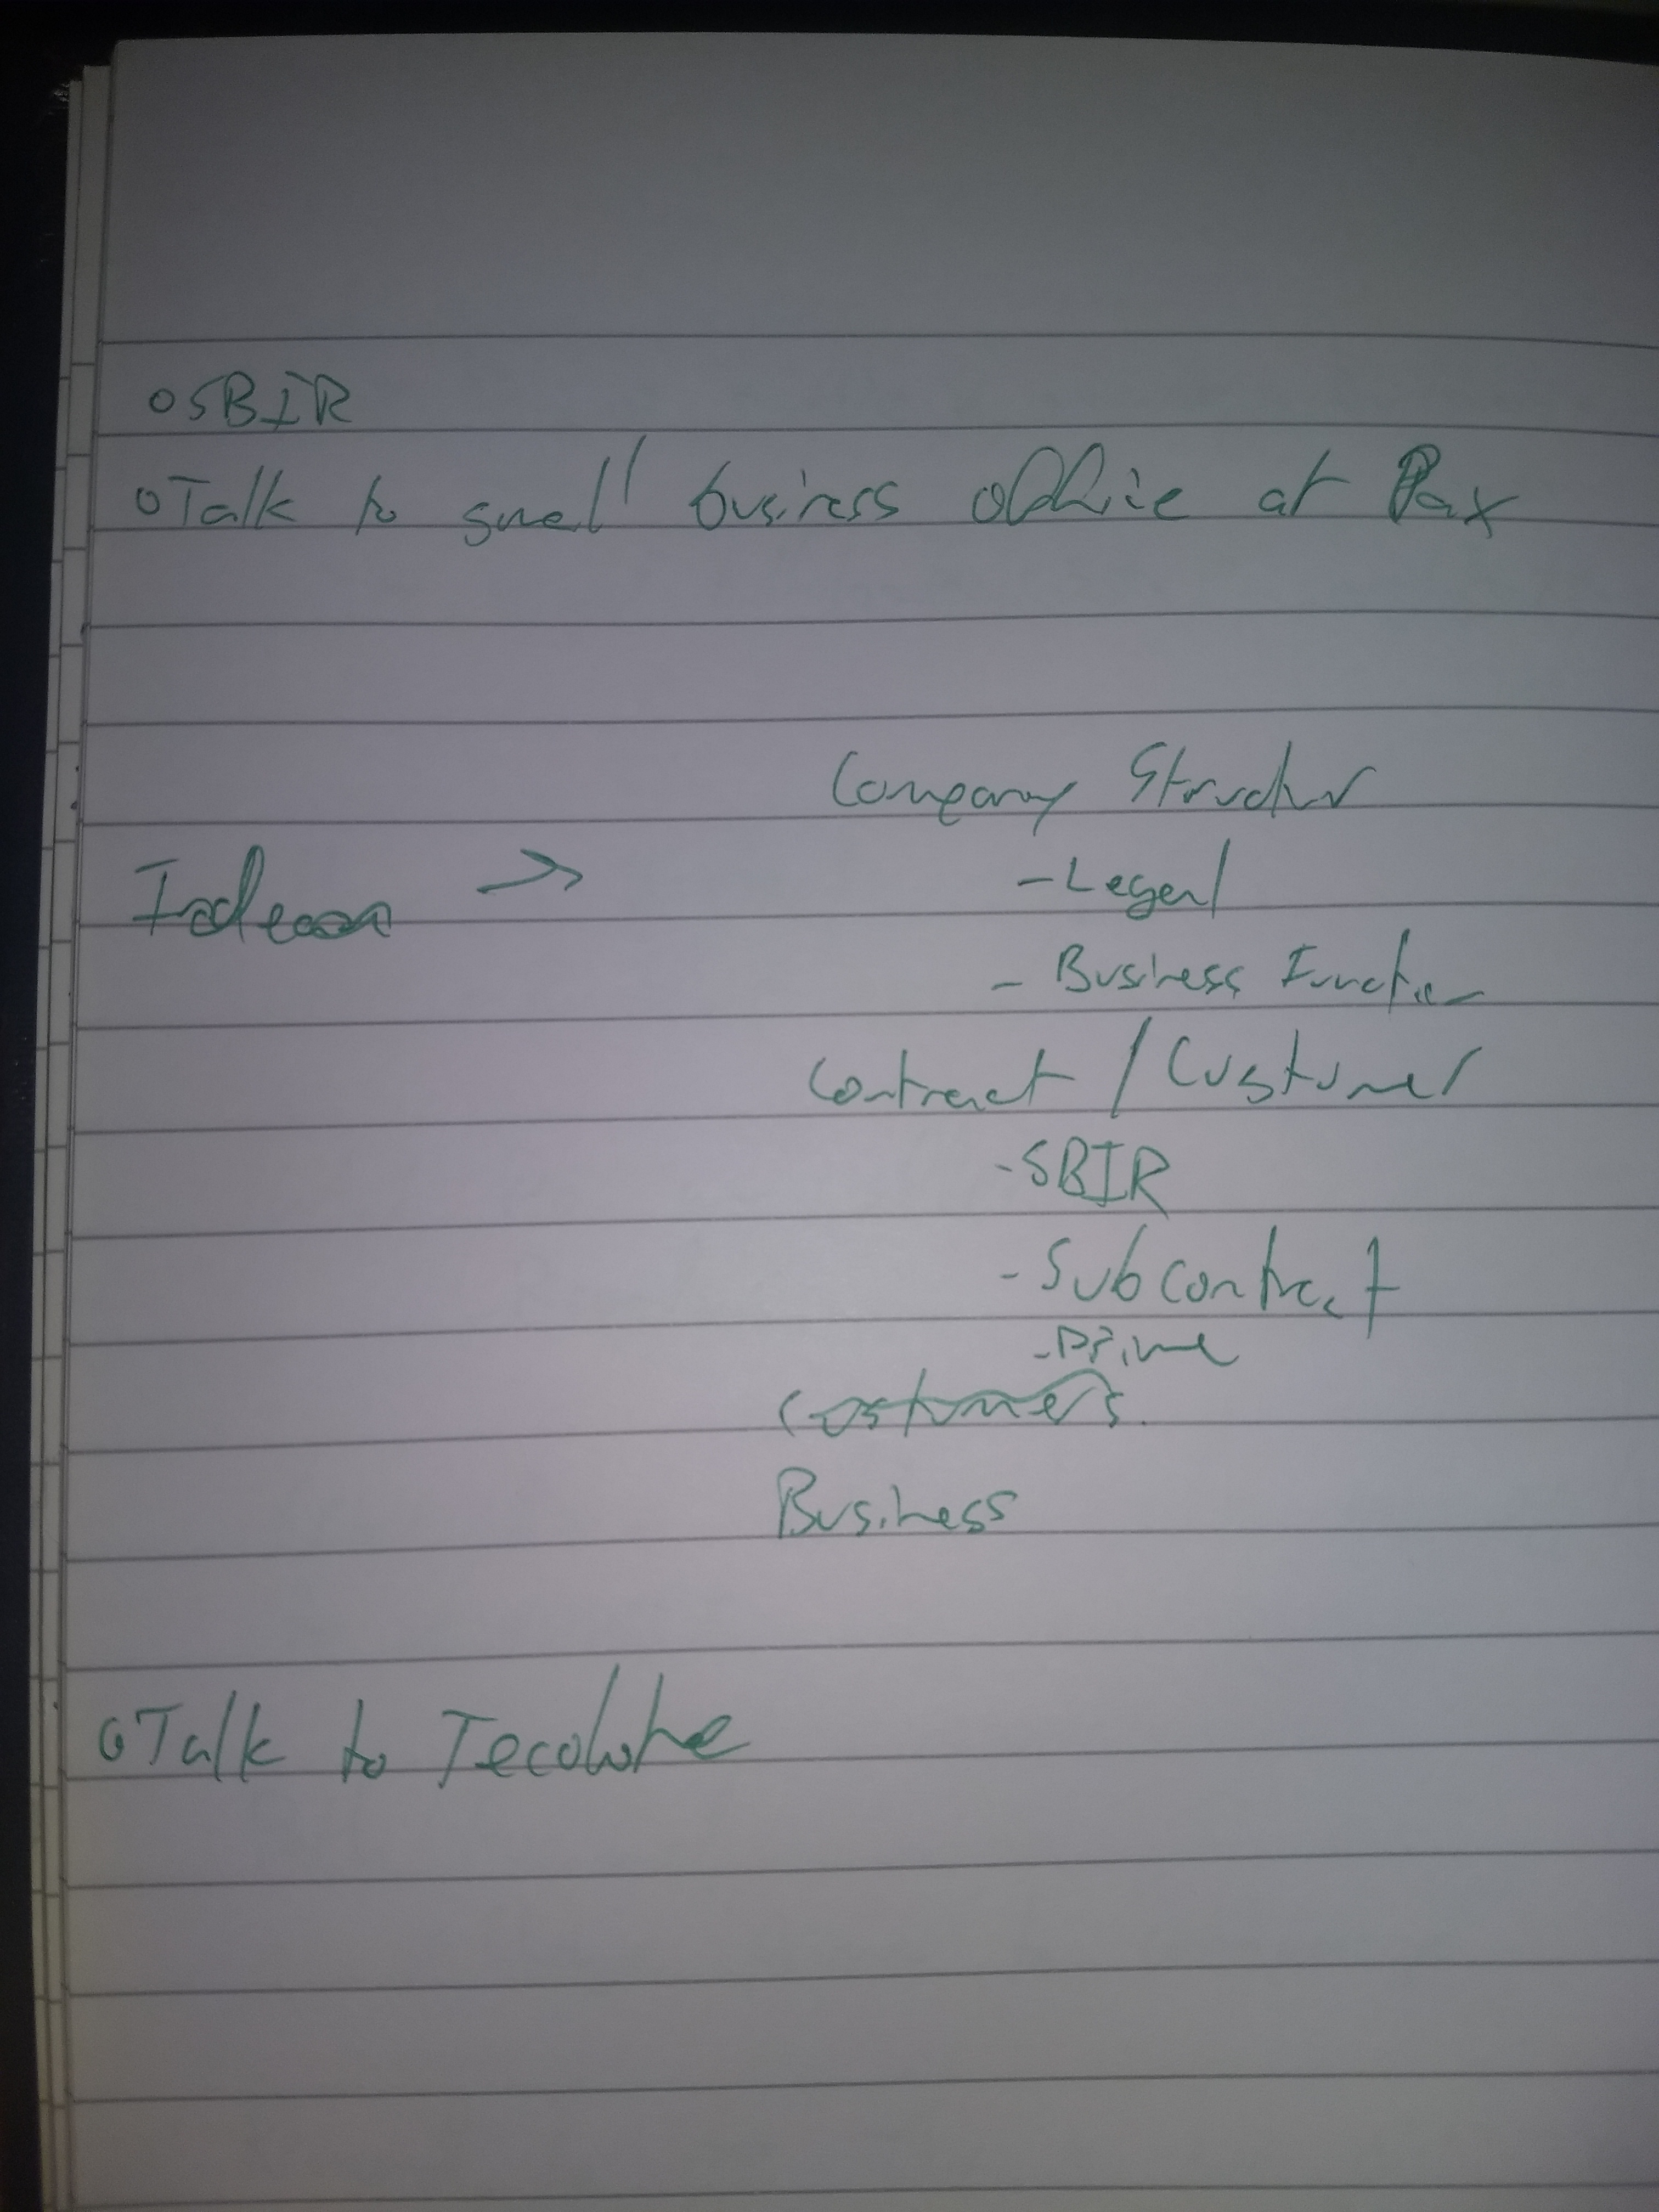 o SBIR
o Talk to small business office at Pax
Company Structur
->
- Legal
- Business Function
Contract / Customer
- SBIR
- Subcontract
- Prime
Costumers
Business
o Talk to Tecolote